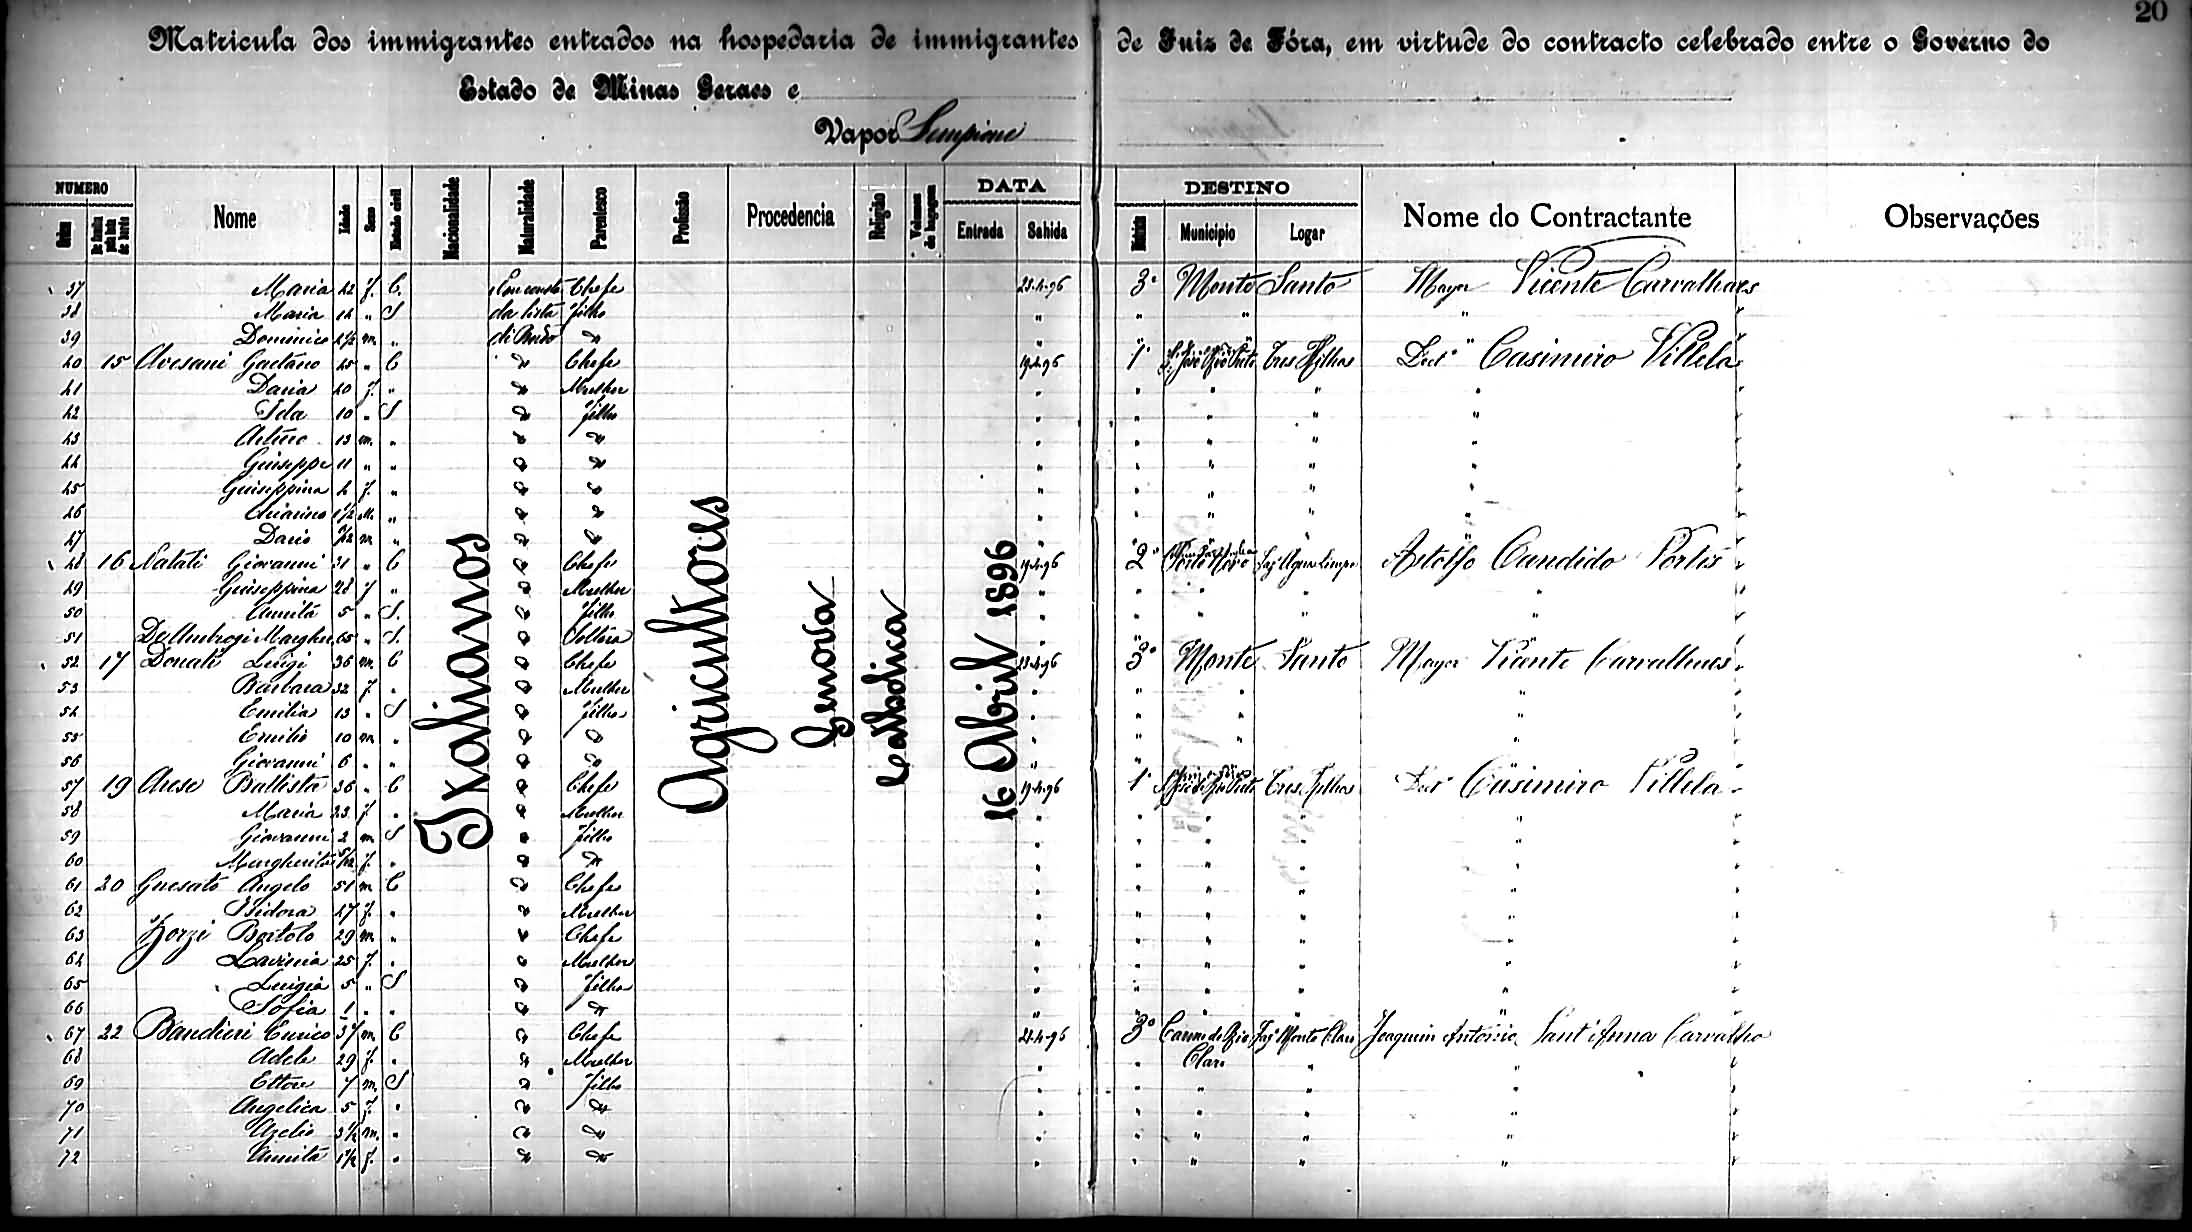 20
Matricula dos immigrantes entrados na hospedaria de immigrantes de Juiz de Fóra, em virtude do contracto celebrado entre o Governo do
Estado de Minas Geraes e
Vapor Sempione
NUMERO DATA DESTINO
Ordem Nome Idade Sexo Estado civil Nacionalidade Naturalidade Parentesco Profissão Procedencia Religião Volumes de bagagem Entrada Sahida Municipio Logar Nome do Contractante Observações
Italianos Agricultores Genova Catholica 16 Abril 1896
37 Maria 42 f. C. Chefe 23-4-96 3º Monte Santo Major Vicente Carvalhaes
38 Maria 14 " S da lista filha " " " "
39 Dominico m. " di Bordo " "
40 15 Avesani Gaetano 45 " C " Chefe 19-4-96 1º Tres Ilhas Casimiro Villela
41 Daria 40 f. " " Mulher " " " " "
42 Ida 10 " S " filha " " " " "
43 Arturo 13 m. " " " " " " " "
44 Giuseppe 11 " " " " " " " " "
45 Giuseppina 4 f. " " " " " " " "
46 1/2 M. " " " " " " " "
47 Dario m " " " " " " " "
48 16 Natali Giovanni 31 " C " Chefe 19-4-96 2º Faz Agua Limpa Astolfo Candido Portes
49 Giuseppina 28 f " " Mulher " " " " "
50 Annita 5 " S. " filha " " " " "
51 De Ambrogi Margher. 65 " S. " Soltera " "
52 17 Donati Luigi 36 m. C " Chefe 23-4-96 3º Monte Santo Major Vicente Carvalhaes
53 Barbara 32 f. " " Mulher " " " "
54 Emilia 13 " S " filha " " " "
55 Emilio 10 m. " " " " " " "
56 Giovanni 6 " " " " " " "
57 19 Arese Battista 36 " C " Chefe 19-4-96 1º Tres Ilhas Casimiro Villela
58 Maria 23 f. " " Mulher " " " " "
59 Giovanni 2 m S " filho " " " " "
60 Margherita f. " " " " " " " "
61 20 Guesato Angelo 51 m C " Chefe " " " " "
62 Isidora 47 f. " " Mulher " " " " "
63 Zorzi Bortolo 29 m. " " Chefe " " " " "
64 Lavinia 25 f. " " Mulher " " " " "
65 Luigia 5 " S " filha " " " " "
66 Sofia 1 " " " " " " " " "
67 22 Bandieri Enrico 37 m. C " Chefe 3º Carmo do Rio Faz Monte Claro Joaquim Antonio Sant'Anna Carvalho
68 Adele 29 f. " " Mulher " " Claro " "
69 Ettore 7 m. S " filho " " " " "
70 Angelica 5 f. " " " " " " " "
71 Azelio 3 1/2 m. " " " " " " " "
72 Annita 1 1/2 f. " " " " " " " "